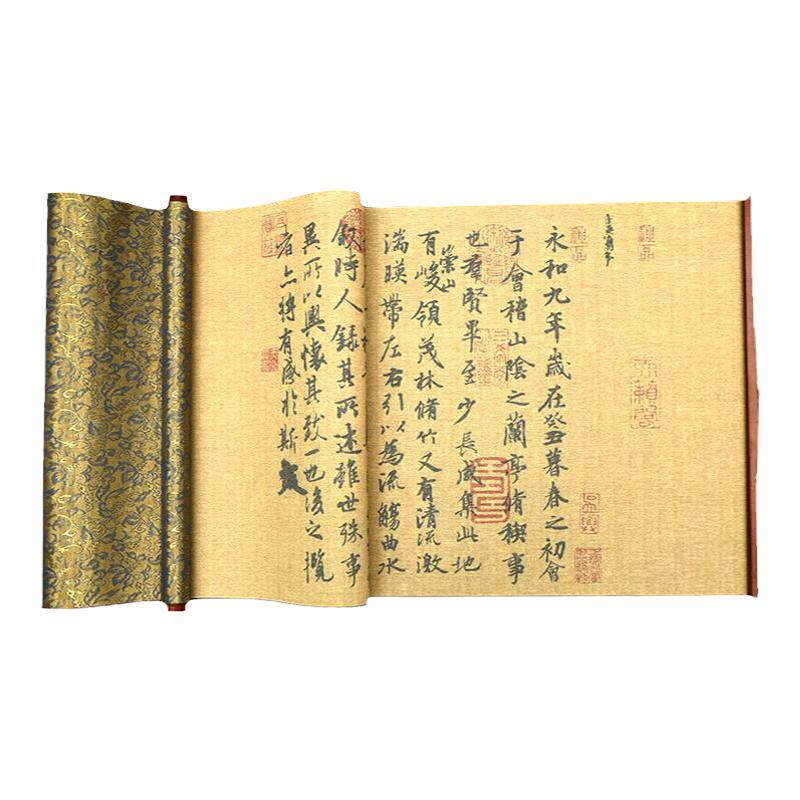 永和九年歲在癸丑暮春之初會
于會稽山陰之蘭亭脩稧事
也羣賢畢至少長咸集此地
有崇山峻領茂林脩竹又有清流激
湍暎帶左右引以為流觴曲水
叙時人錄其所述雖世殊事
異所以興懷其致一也後之攬
者亦將有感於斯文